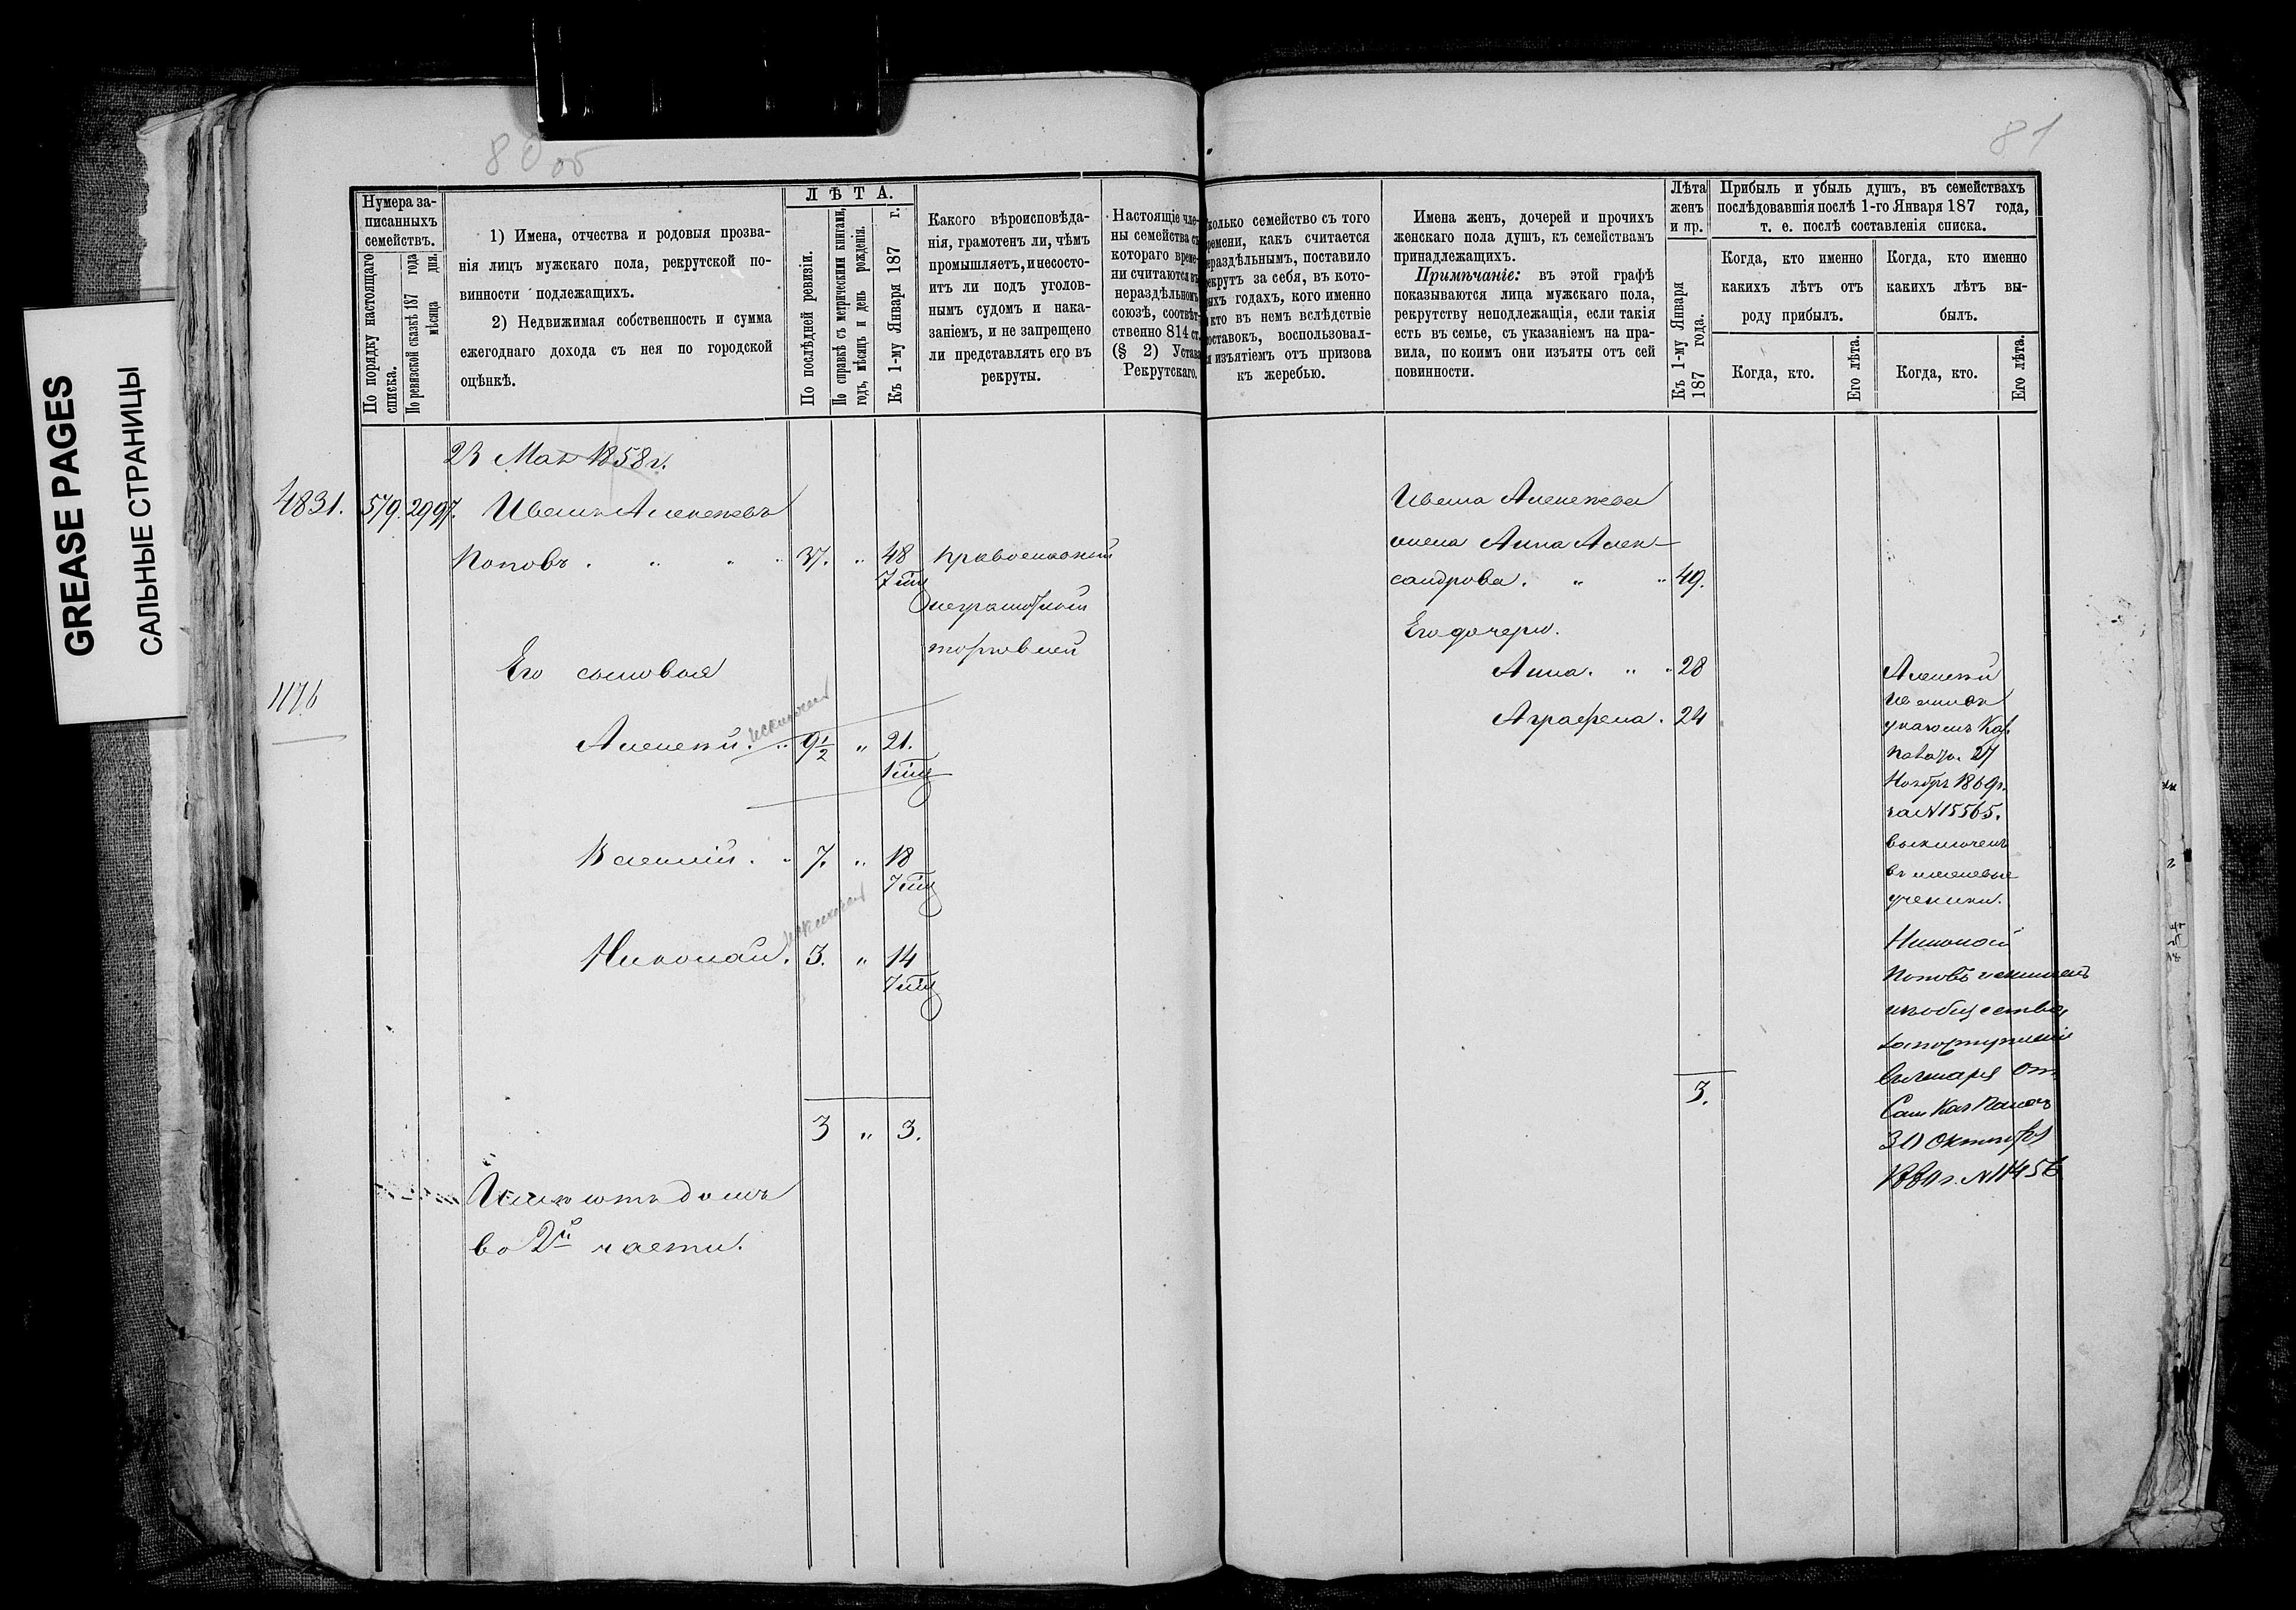 GREASE PAGES
САЛЬНЫЕ СТРАНИЦЫ
80 об
Нумера за-
писанныхъ
семействъ.
По порядку настоящаго
списка.
По ревизской сказкѣ 187 года
мѣсяца дня.
1) Имена, отчества и родовыя прозва-
нія лицъ мужскаго пола, рекрутской по-
винности подлежащихъ.
2) Недвижимая собственность и сумма
ежегоднаго дохода съ нея по городской
оцѣнкѣ.
ЛѢТА.
По послѣдней ревизіи.
По справкѣ съ метрическими книгами,
годъ, мѣсяцъ и день рожденія.
Къ 1-му Января 187 г.
Какого вѣроисповѣда-
нія, грамотенъ ли, чѣмъ
промышляетъ, и несосто-
итъ ли подъ уголов-
нымъ судомъ и нака-
заніемъ, и не запрещено
ли представлять его въ
рекруты.
Настоящіе чле-
ны семейства съ
котораго време-
ни считаются въ
нераздѣльномъ
союзѣ, соотвѣт-
ственно 814 ст.
(§ 2) Устава
Рекрутскаго.
23 Мая 1858 г.
4831. 579. 2997. Иванъ Алексѣевъ
Поповъ . " " " 37. " 48 православный
7 мѣц
неграмотный
торговлей
Его сыновья
1176
Алексѣй. " 9 1/2 " 21.
исключенъ
1 мѣц
Василій. " 7. " 18
7 мѣц
исключенъ
Николай. 3. " 14
7 мѣц
3 " 3.
Имѣютъ домъ
во 2й части.
81
сколько семейство съ того
времени, какъ считается
нераздѣльнымъ, поставило
рекрутъ за себя, въ кото-
рыхъ годахъ, кого именно
и кто въ немъ вслѣдствіе
поставокъ, воспользовал-
ся изъятіемъ отъ призова
къ жеребью.
Имена женъ, дочерей и прочихъ
женскаго пола душъ, къ семействамъ
принадлежащихъ.
Примѣчаніе: въ этой графѣ
показываются лица мужскаго пола,
рекрутству неподлежащія, если такія
есть въ семье, съ указаніемъ на пра-
вила, по коимъ они изъяты отъ сей
повинности.
Лѣта
женъ
и пр.
Къ 1-му Января
187 года.
Прибыль и убыль душъ, въ семействахъ
послѣдовавшія послѣ 1-го Января 187 года,
т. е. послѣ составленія списка.
Когда, кто именно
какихъ лѣтъ отъ
роду прибылъ.
Когда, кто.
Его лѣта.
Когда, кто именно
какихъ лѣтъ вы-
былъ.
Когда, кто.
Его лѣта.
Ивана Алексѣева
жена Анна Алек-
сандрова. " " 49.
Его дочери.
Анна. " " 28
Аграфена. 24
3.
Алексѣй
Ивановъ
указомъ Каз.
Палаты. 27
Ноябрь 1869 г.
за № 15565.
выключенъ
въ
ученики.
Николай
Поповъ исключенъ
изъ общества
Каз Палат
30 Октября